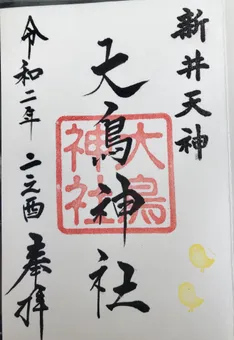 新井天神
大鳥神社
大鳥
神社
令和二年 二之酉
奉拝